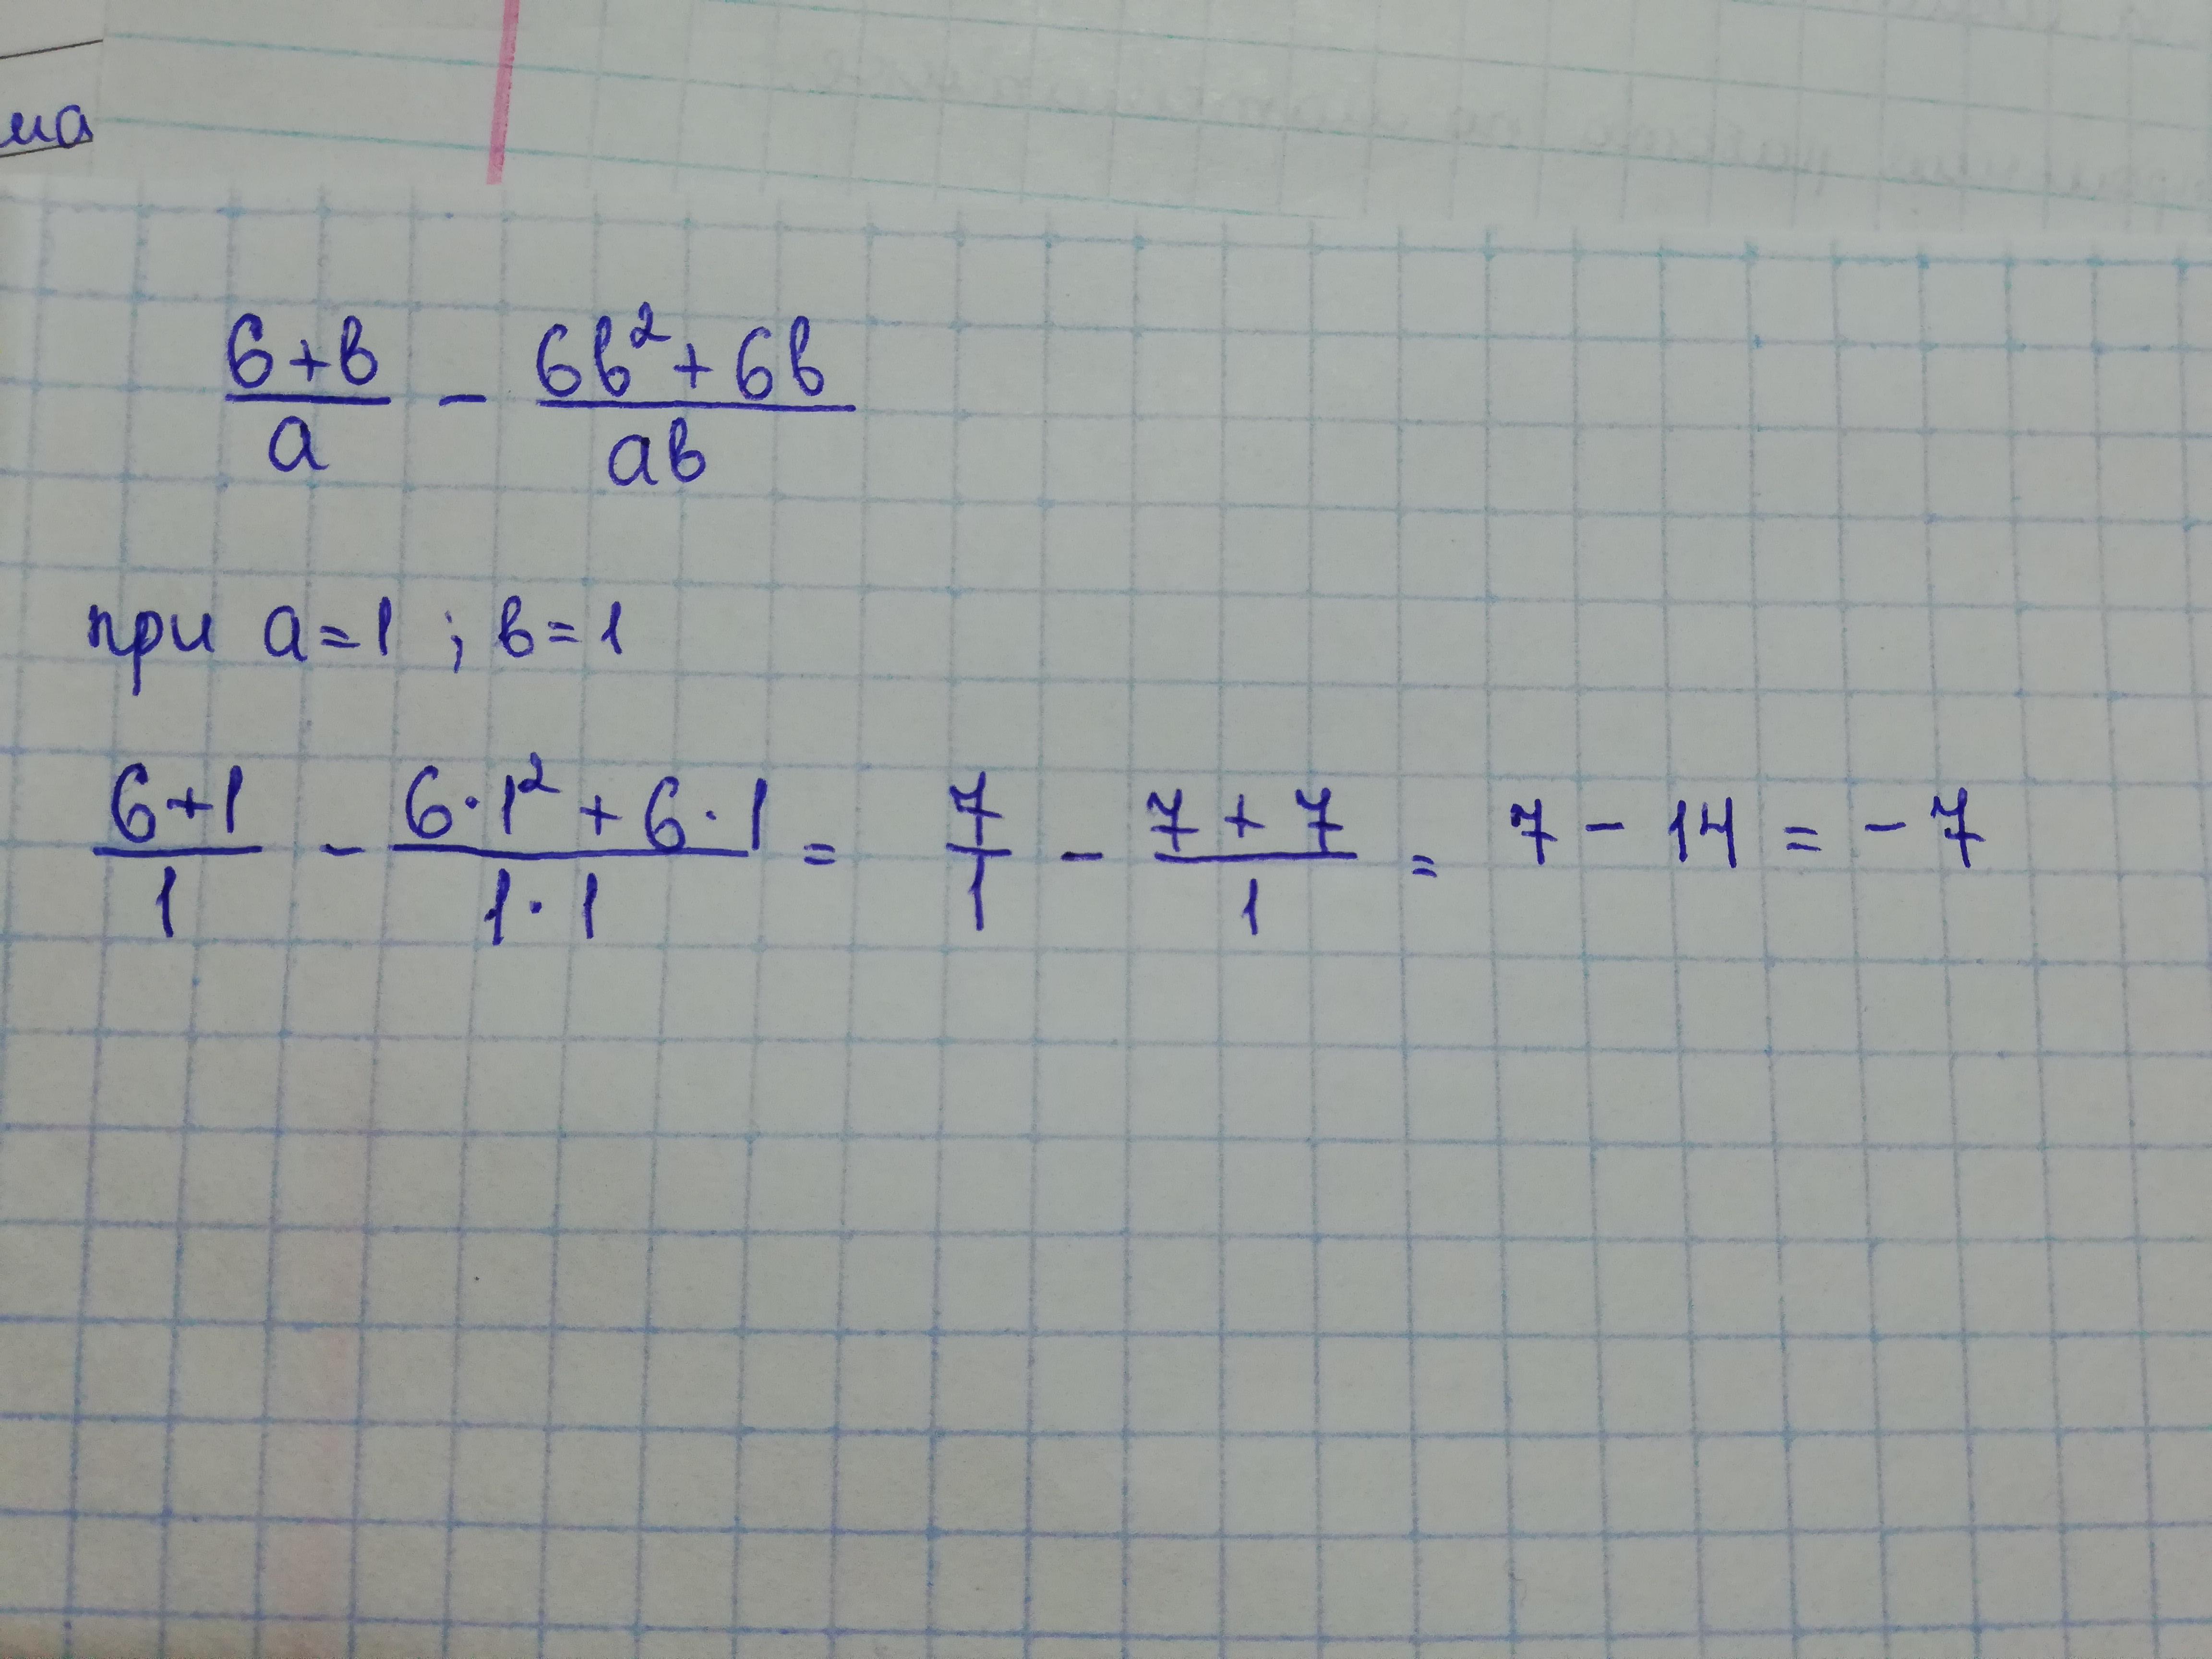 ма
6+в/a - 6в²+6в/ав
при а=1 ; в=1
6+1/1 - 6·1²+6·1/1·1 = 7/1 - 7+7/1 = 7 - 14 = - 7